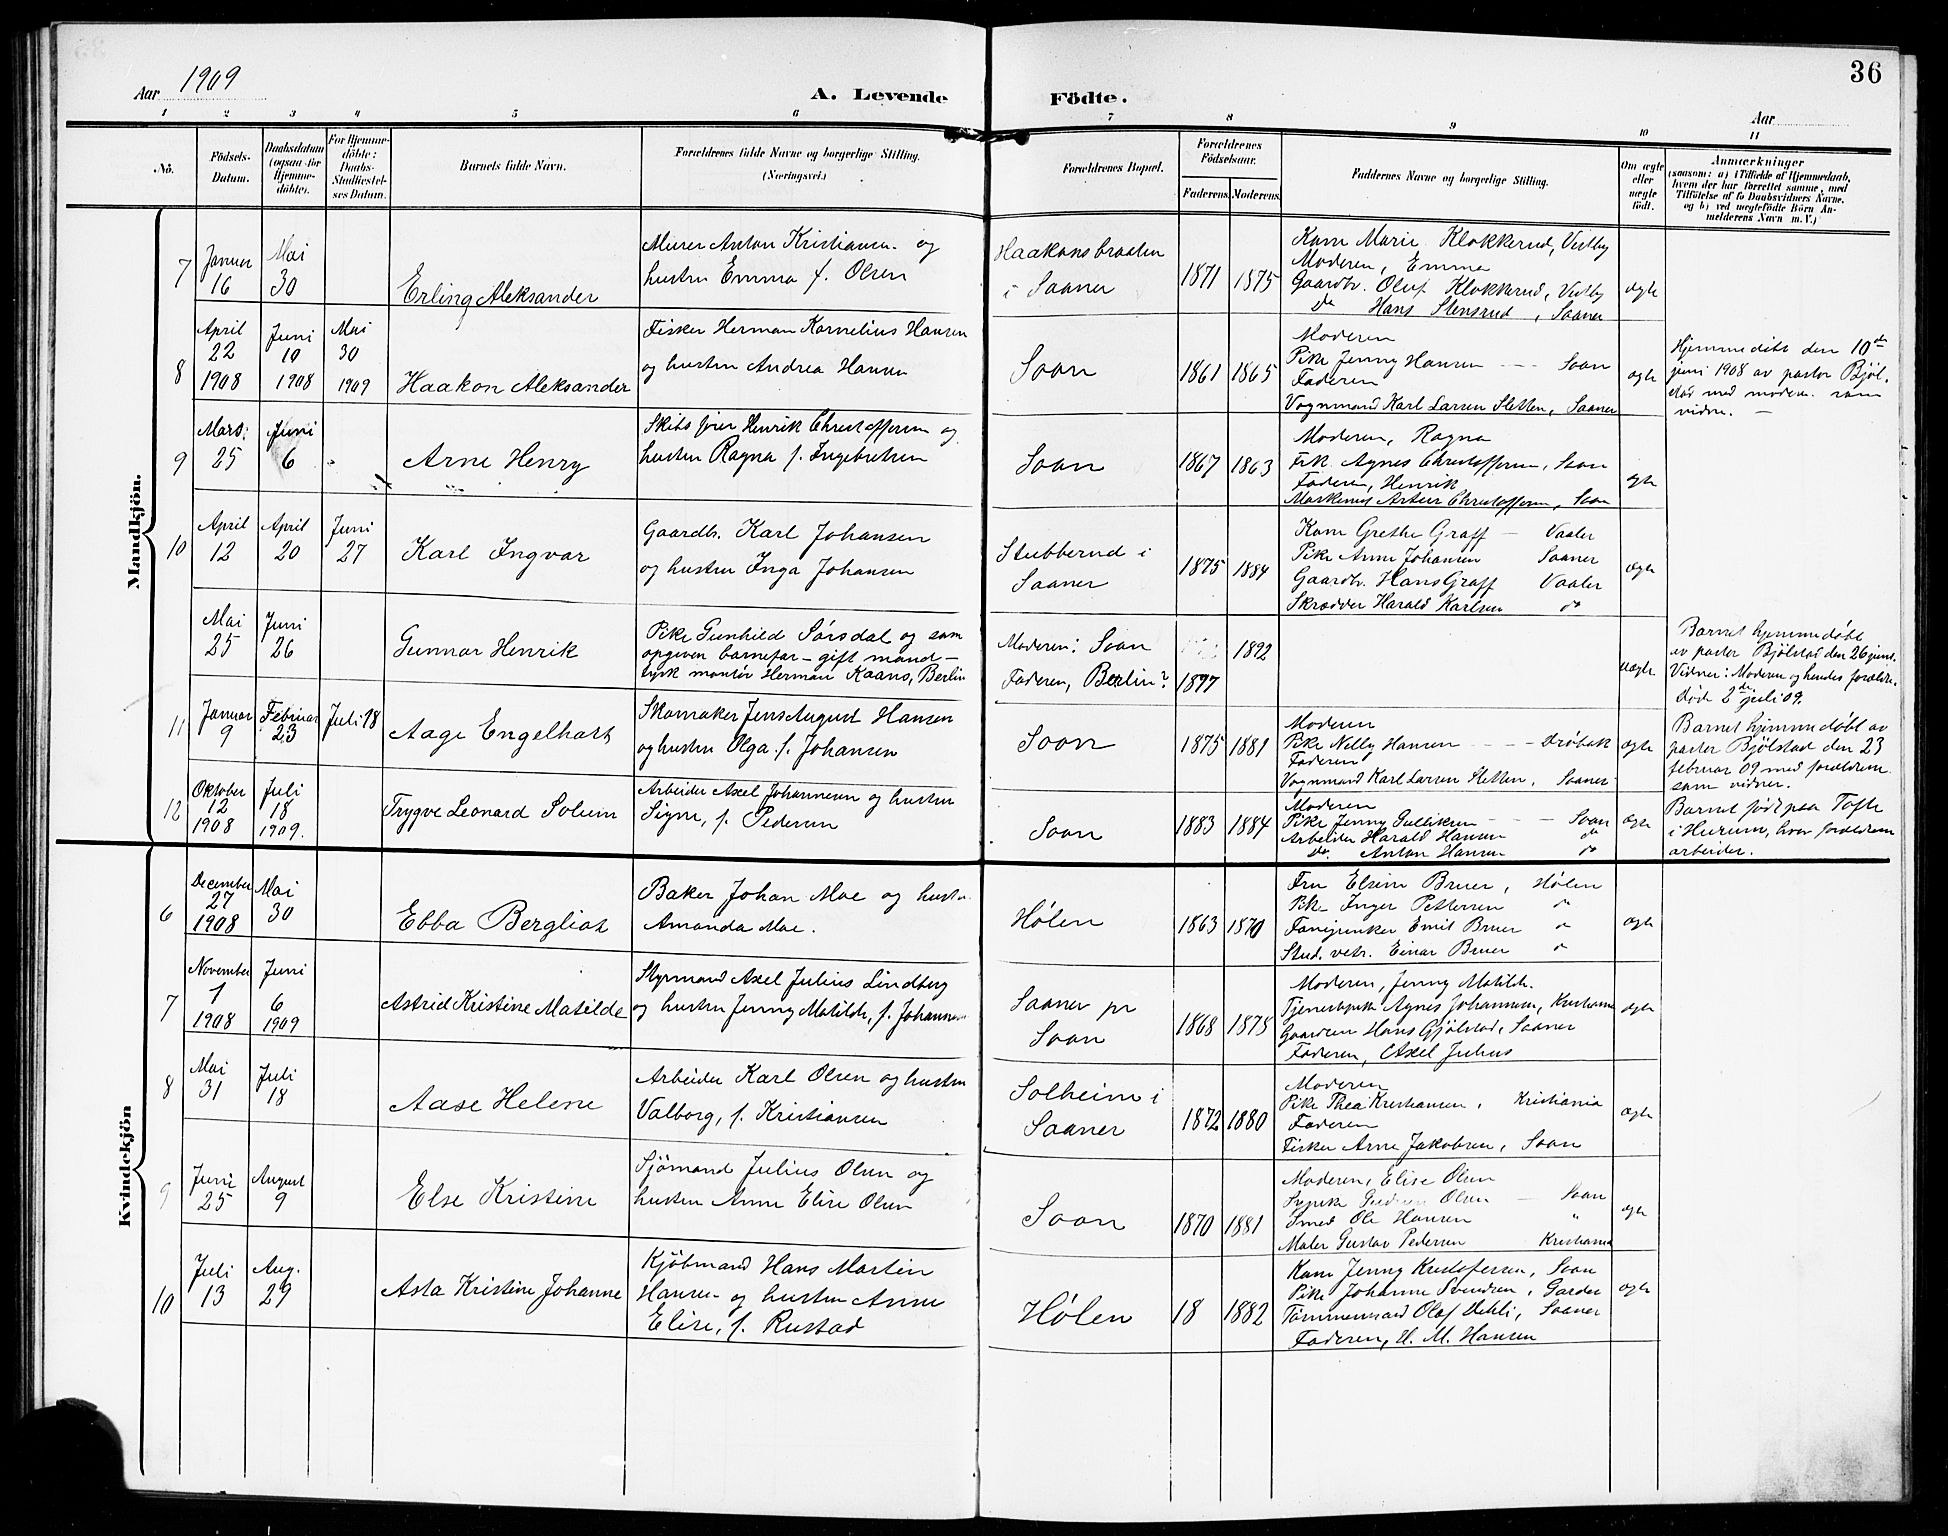 36
Aar 1909
A. Levende Födte.
Aar
1 2 3 4 5 6 7 8 9 10 11
No.
Födsels-Datum.
Daabsdatum (ogsaa for Hjemme-döbte).
For Hjemme-döbte: Daabs-Stadfæstel-ses Datum.
Barnets fulde Navn.
Forældrenes fulde Navne og borgerlige Stilling.
(Næringsvei.)
Forældrenes Bopæl.
Forældrenes Födselsaar.
Faderens. Moderens.
Faddernes Navne og borgerlige Stilling.
Om ægte eller uægte födt.
Anmærkninger
(saasom: a) i Tilfælde af Hjemmedaab, hvem der har forrettet samme, med Tilföielse af to Daabsvidners Navne, og b) ved uægtefödte Börn Anmelderens Navn m. V.)
Mandkjön.
7
Januar 16
Mai 30
Erling Aleksander
Murer Anton Kristiansen og
hustru Emma f. Olsen
Haakonsbraaten
i Saaner
1871
1875
Kone Marie Klokkerud, Vestby
Moderen, Emma
Gaardbr. Olof Klokkerud, Vestby
do Hans Stensrud, Saaner
ægte
8
April 22 1908
Juni 10 1908
Mai 30 1909
Haakon Aleksander
Fisker Herman Kornelius Hansen
og hustru Andrea Hansen
Soon
1861
1865
Moderen
Pike Jenny Hansen - - - Soon
Faderen
Vognmand Karl Larsen Sletten, Saaner
ægte
Hjemmedöbt den 10de
juni 1908 av pastor Bjöl-
stad med moderen som
vidne. —
9
Mars 25
Juni 6
Arne Henry
Skibsförer Henrik Christoffersen og
hustru Ragna f. Ingebretsen
Soon
1867
1863
Moderen, Ragna
Frk. Agnes Christoffersen, Soon
Faderen, Henrik
Maskinist Artur Christoffersen, Soon
ægte
10
April 12
April 20
Juni 27
Karl Ingvar
Gaardb. Karl Johansen
og hustru Inga Johansen
Stubberud i
Saaner
1875
1884
Kone Grethe Graff — Vaaler
Pike Anne Johansen Saaner
Gaardbr. Hans Graff Vaaler
Skrædder Harald Karlsen do
ægte
Mai 25
Juni 26
Gunnar Henrik
Pike Gunhild Sörsdal og som
opgiven barnefar – gift mand –
tysk montör Herman Kaans, Berlin
Moderen: Soon
Faderen, Berlin?
1892
1897
uægte
Barnet hjemmedöbt
av pastor Bjölstad den 26 juni.
Vidner: Moderen og hendes forældre.
Död 2de juli 09.
11
Januar 9
Februar 23
Juli 18
Aage Engelhart
Skomaker Jens August Hansen
og hustru Olga f. Johansen
Soon
1875
1881
Moderen
Pike Nelly Hansen - - - Dröbak
Faderen
Vognmand Karl Larsen Sletten, Saaner
ægte
Barnet hjemmedöbt av
pastor Bjölstad den 23
februar 09 med forældrene
som vidner.
12
Oktober 12 1908
Juli 18 1909.
Trygve Leonard Solum
Arbeider Axel Johannesen og hustru
Signe, f. Pedersen
Soon
1883
1884
Moderen
Pike Jenny Gulliksen - - - Soon
Arbeider Harald Hansen do
do. Anton Hansen do
ægte
Barnet födt paa Tofte
i Hurum, hvor forældrene
arbeider.
Kvindekjön
6
December 27 1908
Mai 30
Ebba Bergliot
Baker Johan Moe og hustru
Amanda Moe.
Hölen
1863
1870
Fru Elsine Bruer, Hölen
Pike Inger Pettersen "
Fanejunker Emil Bruer "
Stud. vetr. Einar Bruer "
ægte
7
November 1 1908
Juni 6 1909
Astrid Kristine Matilde
Styrmand Axel Julius Lindberg
og hustru Jenny Matilde, f. Johannesen
Saaner pr
Soon
1868
1875
Moderen, Jenny Matilde.
Tjenestepike Agnes Johannesen, Kristiania
Gaardbr. Hans Gjölstad, Saaner
Faderen, Axel Julius
ægte
8
Mai 31
Juli 18
Aase Helene
Arbeider Karl Olsen og hustru
Valborg, f. Kristiansen
Solheim i
Saaner
1872
1880
Moderen
Pike Thea Kristiansen, Kristiania
Faderen
Fisker Arne Jakobsen, Soon
ægte
9
Juni 25
August 9
Else Kristine
Sjömand Julius Olsen og
hustru Anne Elise Olsen
Soon
1870
1881
Moderen, Elise Olsen
Sypike Olsen — Soon
Smed Ole Hansen "
Maler Gustav Pedersen Kristiania
ægte
10
Juli 13
Aug. 29
Asta Kristine Johanne
Kjöbmand Hans Martin
Hansen og hustru Anne
Elise, f. Rustad
Hölen
18
1882
Kone Jenny Kristofersen, Soon
Pike Johanne Svendsen, Garder
Tömmermand Olof Dehli, Saaner
Faderen, H. M. Hansen
ægte